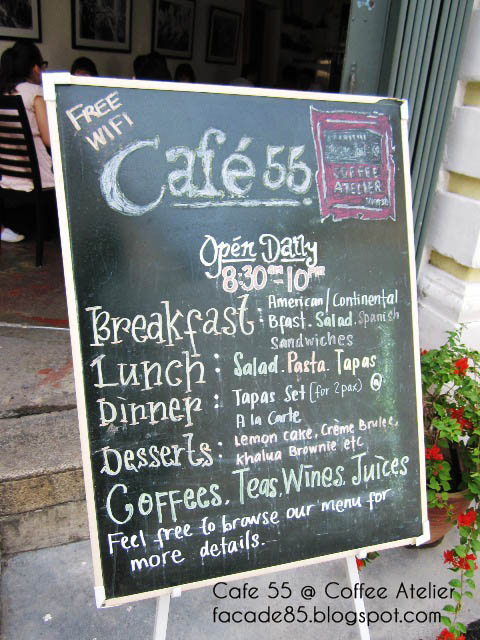 FREE
WIFI
Café 55
COFFEE
ATELIER
Open Daily
8:30am-10pm
Breakfast: American/Continental
Bfast. Salad. Spanish
Sandwiches
Lunch: Salad. Pasta. Tapas
Dinner: Tapas Set (for 2pax) @
A la Carte
Desserts: Lemon cake, Crème Brulee,
Khalua Brownie etc
Coffees, Teas, Wines, Juices
Feel free to browse our menu for
more details.
Cafe 55 @ Coffee Atelier
facade85.blogspot.com